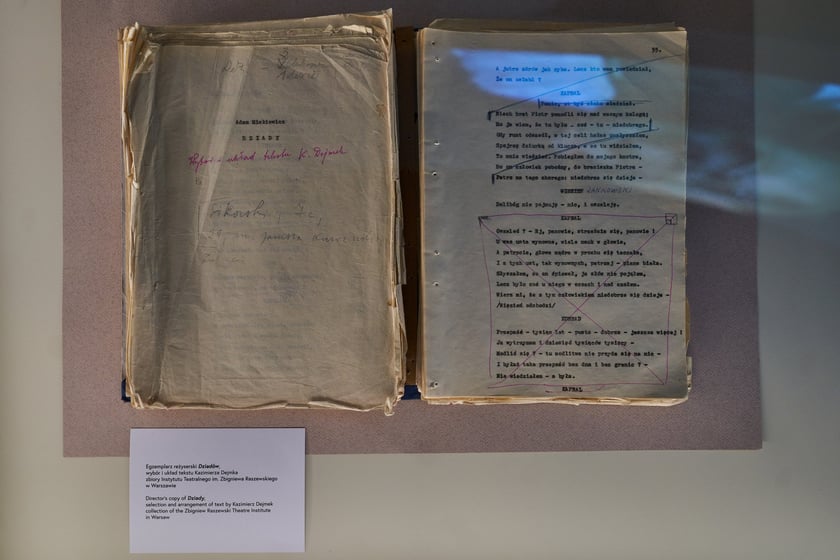 Adam Mickiewicz
DZIADY
Wybór i układ tekstu K. Dejmek
35.
A jutro zdrów jak ryba. Lecz kto wam powiedział,
Że on osłabł ?
KAPRAL
Panie, ot być blisko siedział.
Niech brat Piotr pomodli się nad waszym kolegą;
Bo ja wiem, że tu było … coś - tu - niedobrego.
Gdy runt odszedł, w tej celi hałas posłyszałem,
Spojrzę dziurką od klucza, a co tu widziałem,
To mnie wiedzieć. Pobiegłem do mojego kmotra,
Bo on człowiek pobożny, do braciszka Piotra -
Patrz na tego chorego: niedobrze się dzieje -
WIĘZIEŃ JANKOWSKI
Dalibóg nie pojmuję - nic, i oszaleję.
KAPRAL
Oszaleć ? - Ej, panowie, strzeżcie się, panowie !
U was usta wymowne, wiele nauk w głowie,
A patrzcie, głowa mądra w prochu się taczała,
I z tych ust, tak wymownych, patrzaj - piana biała.
Słyszałem, co on śpiewał, ja słów nie pojąłem,
Lecz było coś u niego w oczach i nad czołem.
Wierz mi, że z tym człowiekiem niedobrze się dzieje -
/Więzień odchodzi/
KONRAD
Przepaść - tysiąc lat - pusto - dobrze - jeszcze więcej !
Ja wytrzymam i dziesięć tysięców tysięcy -
Modlić się ? - tu modlitwa nie przyda się na nic -
I byłaż taka przepaść bez dna i bez granic ? -
Nie wiedziałem - a była.
KAPRAL
Egzemplarz reżyserski Dziadów,
wybór i układ tekstu Kazimierza Dejmka
zbiory Instytutu Teatralnego im. Zbigniewa Raszewskiego
w Warszawie
Director's copy of Dziady,
selection and arrangement of text by Kazimierz Dejmek
collection of the Zbigniew Raszewski Theatre Institute
in Warsaw